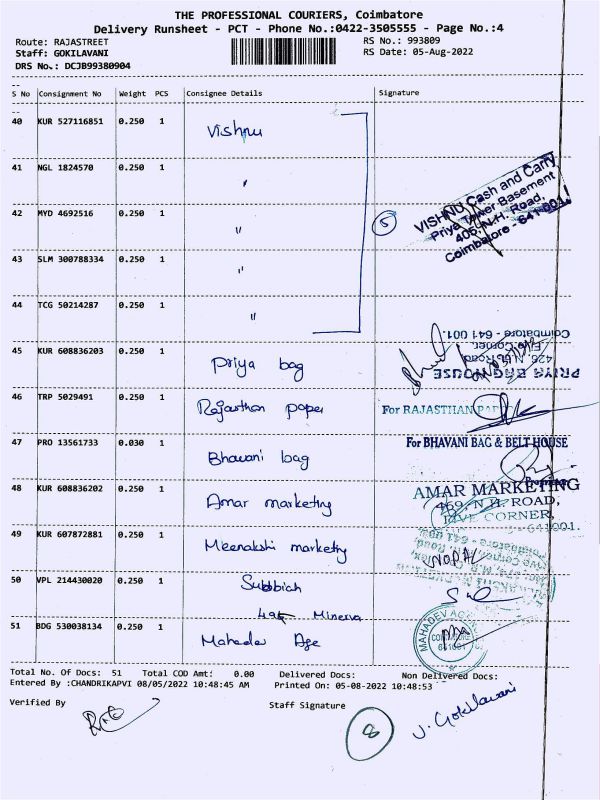 THE PROFESSIONAL COURIERS, Coimbatore
Delivery Runsheet - PCT - Phone No.:0422-3505555 - Page No.:4
Route: RAJASTREET RS No.: 993809
Staff: GOKILAVANI RS Date: 05-Aug-2022
DRS No.: DCJB99380904
S No Consignment No Weight PCS Consignee Details Signature
40 KUR 527116851 0.250 1 Vishnu
41 NGL 1824570 0.250 1 "
VISHNU Cash and Carry
Priya Tower Basement
405, N.H. Road,
Coimbatore - 641 001.
42 MYD 4692516 0.250 1 "
5
43 SLM 300788334 0.250 1 "
44 TCG 50214287 0.250 1 "
Coimbatore - 641 001.
Five Corner,
426, N.H. Road
PRIYA BAG HOUSE
45 KUR 608836203 0.250 1 Priya bag
46 TRP 5029491 0.250 1 Rajasthan paper
For RAJASTHAN
47 PRO 13561733 0.030 1 Bhavani bag
For BHAVANI BAG & BELT HOUSE
48 KUR 608836202 0.250 1 Amar marketing
AMAR MARKETING
469, N.H. ROAD,
FIVE CORNER,
641001.
49 KUR 607872881 0.250 1 Meenakshi marketing
50 VPL 214430020 0.250 1 Subbiah
495 Minerva
51 BDG 530038134 0.250 1 Mahadev Age
MAHADEV AGENC
641001
Total No. Of Docs: 51 Total COD Amt: 0.00 Delivered Docs: Non Delivered Docs:
Entered By :CHANDRIKAPVI 08/05/2022 10:48:45 AM Printed On: 05-08-2022 10:48:53
Verified By Staff Signature
8
J. Gokilavani